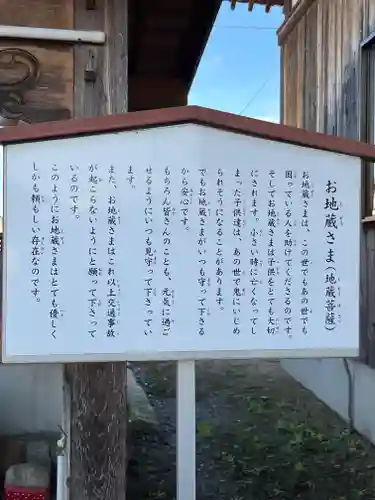 お地蔵さま（地蔵菩薩）
お地蔵さまは、この世でもあの世でも
困っている人を助けてくださるのです。
そしてお地蔵さまは子供をとても大切
にされます。小さい時に亡くなってし
まった子供達は、あの世で鬼にいじめ
られそうになることがあります。
でもお地蔵さまがいつも守って下さる
から安心です。
もちろん皆さんのことも、元気に過ご
せるようにいつも見守って下さってい
ます。
また、お地蔵さまはこれ以上交通事故
が起こらないようにと願って下さって
いるのです。
このようにお地蔵さまはとても優しく
しかも頼もしい存在なのです。